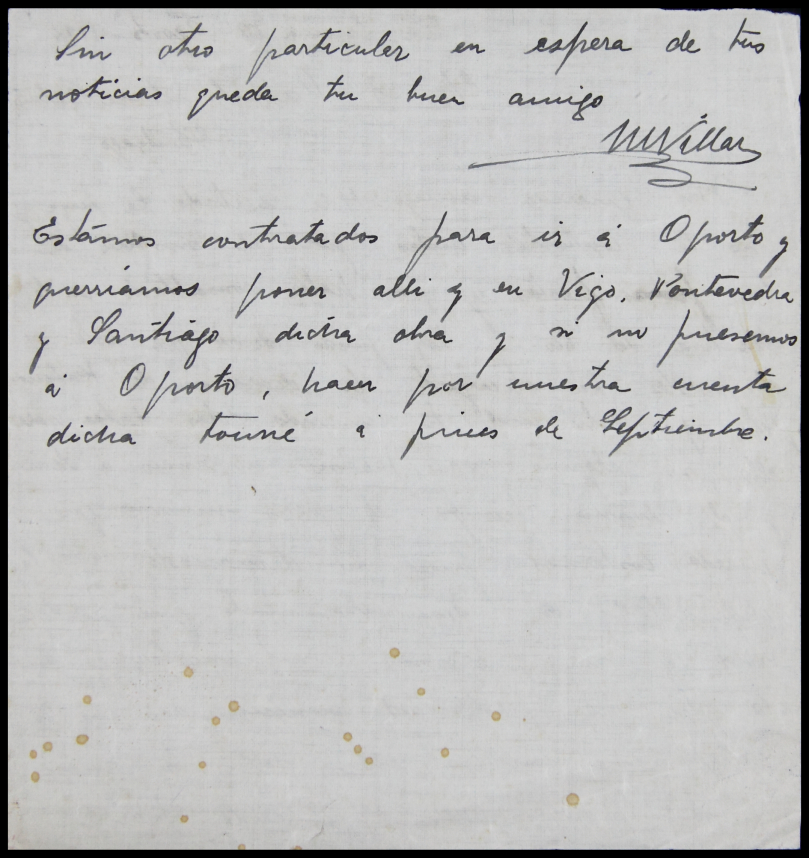 Sin otro particuler en espera de tus
noticias queda tu buen amigo
MVillar
Estámos contratados para ir á Oporto y
querriámos poner alli y en Vigo, Pontevedra
y Santiágo dicha obra y si no fuesemos
á Oporto, hacer por nuestra cuenta
dicha tourné á fines de Septiembre.